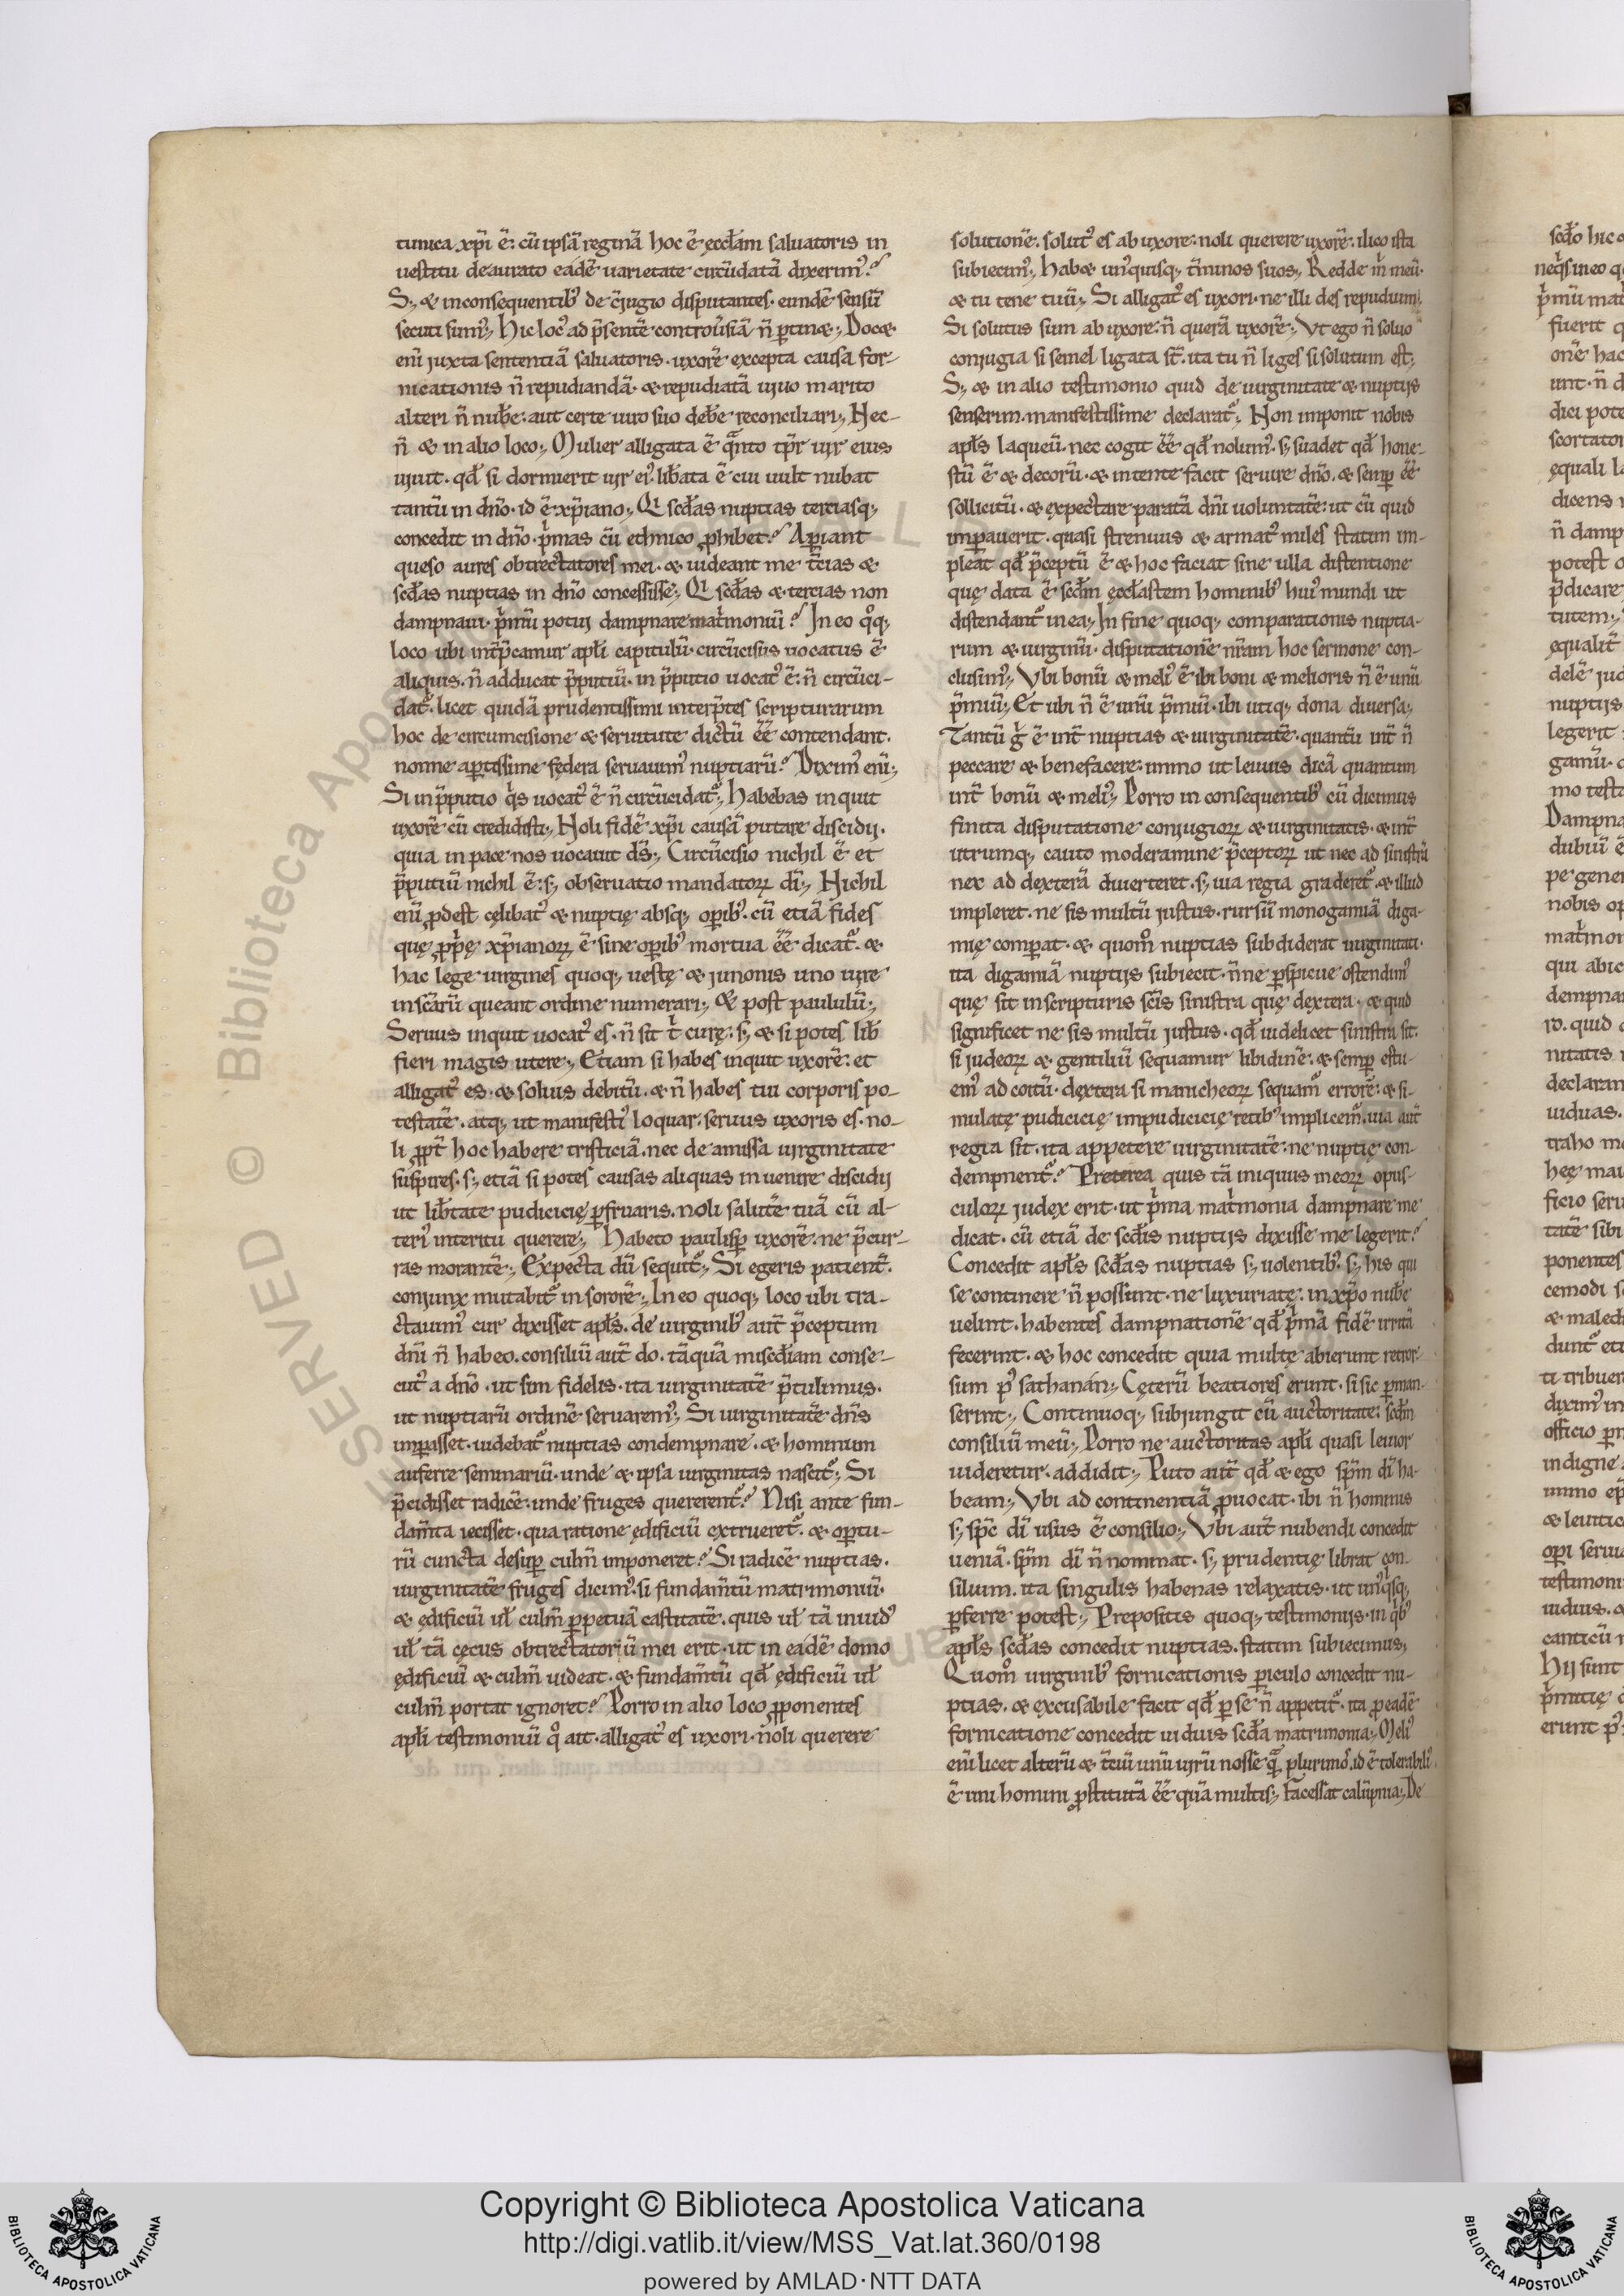 tunica xp̃i ẽ. cũ ipsã reginã hoc ẽ ęccłam saluatoris in
uestitu deaurato eadẽ uarietate circũdatã dixerimꝰ?
S; & in consequentibꝰ de cĩugio disputantes. eundẽ sensũ
secuti sumꝰ; Hic locꝰ ad p̃sentẽ controũsiã ñ ꝑtinet; Docet
eni᷒ juxta sententiã saluatoris. uxorẽ excepta causa for-
nicationis ñ repudiandã. & repudiatã uiuo marito
alteri ñ nuƀe. aut certe uiro suo deƀe reconciliari; Nec-
ñ & in alio loco; Mulier alligata ẽ qᷓnto tp̃r uir eius
uiuit. qđ si dormierit uir eiꝰ. liƀata ẽ cui uult nubat
tantũ in dño. id ẽ xp̃iano; Qi scđas nuptias terciasq;
concedit in dño. pⁱmas cũ ethnico ꝓhibet? Aꝑiant
queso aures obtrectatores mei. & uideant me t̃cias &
scđas nuptias in dño concessisse; Qi scđas & tercias non
dampnaui. pⁱmũ potui dampnare matⁱmoniũ? In eo qͦq;
loco ubi int̃p̃camur apłi capitulũ. circũcisus uocatus ẽ
aliquis. ñ adducat p̃putiũ. in p̃putio uocatꝰ ẽ. ñ circũci-
datᷣ. licet quidã prudentissimi interp̃tes scripturarum
hoc de circumcisione & seruitute dictũ ẽẽ contendant.
nonne aꝑtissime fędera seruauimꝰ nuptiarũ? Diximꝰ eni᷒;
Si in p̃putio qⁱs uocatꝰ ẽ ñ circũcidatᷣ; Habebas inquit
uxorẽ cũ credidisti; Noli fidẽ xp̃i causã putare discidij.
quia in pace nos uocauit dš; Circũcisio nichil ẽ et
p̃putiũ nichil ẽ. s; obseruatio mandatoꝝ di᷒; Nichil
eni᷒ ꝓdest cęlibatꝰ & nuptię absq; oꝑibꝰ. cũ etiã fides
quę ꝓpⁱę xp̃ianoꝝ ẽ sine oꝑibꝰ mortua ẽẽ dicatᷣ. &
hac lege uirgines quoq; uestę & junonis uno uire
in scãrũ queant ordine numerari; & post paululũ;
Seruus inquit uocatꝰ es. ñ sit tⁱ curę. s; & si potes liƀ
fieri magis utere; Etiam si habes inquit uxorẽ. et
alligatꝰ es. & soluis debitũ. & ñ habes tui corporis po-
testatẽ. atq; ut manifestiꝰ loquar. seruus uxoris es. no-
li ꝓpt̃ hoc habere tristiciã. nec de amissa uirginitate
suspires. s; etiã si potes causas aliquas inuenire discidij
ut liƀtate pudicicię ꝑfruaris. noli salutẽ tuã cũ al-
teriꝰ interitu querere; Habeto paulisꝑ uxorẽ. ne p̃cur-
ras morantẽ; Expecta dũ sequitᷣ; Si egeris patient̃.
conjunx mutabitᷣ in sororẽ; In eo quoq; loco ubi tra-
ctauimꝰ cur dixisset apłs. de uirginibꝰ aut̃ p̃ceptum
dñi ñ habeo. consiliũ aut̃ do. tãquã miscđiam conse-
cutꝰ a dño. ut sim fidelis. ita uirginitatẽ p̃tulimus.
ut nuptiarũ ordinẽ seruaremꝰ; Si uirginitatẽ dñs
imꝑasset. uidebatᷣ nuptias condempnare. & hominum
auferre seminariũ. unde & ipsa uirginitas nascitᷣ; Si
p̃cidisset radicẽ. unde fruges quererentᷣ? Nisi ante fun-
dam̃ta iecisset. qua ratione ędificiũ extrueretᷣ. & oꝑtu-
rũ cuncta desuꝑ culm̃ imponeret? Si radicẽ nuptias.
uirginitatẽ fruges dicimꝰ. si fundam̃tũ matrimoniũ.
& ędificiũ uł culm̃ ꝑpetuã castitatẽ. quis uł tã inuidꝰ
uł tã cęcus obtrectatoriũ mei erit. ut in eadẽ domo
ędificiũ & culm̃ uideat. & fundam̃tũ qđ ędificiũ uł
culm̃ portat ignoret? Porro in alio loco ꝓponentes
apłi testimoniũ qͦ ait. alligatꝰ es uxori. noli querere
solutionẽ. solutꝰ es ab uxore. noli querere uxorẽ. ilico ista
subiecimꝰ; Habet unꝰquisq; t̃minos suos; Redde mⁱ meũ.
& tu tene tuũ; Si alligatꝰ es uxori. ne illi des repudium;
Si solutus sum ab uxore. ñ querã uxorẽ; Vt ego ñ soluo
conjugia si semel ligata st̃. ita tu ñ liges si solutum est;
S; & in alio testimonio quid de uirginitate & nuptijs
senserim. manifestissime declaratᷣ; Non imponit nobis
apłs laqueũ. nec cogit ẽẽ qđ nolumꝰ. s; suadet qđ hone-
stũ ẽ & decorũ. & intente facit seruire dño. & semꝑ ẽẽ
sollicitũ. & expectare paratã dñi uoluntatẽ. ut cũ quid
imꝑauerit. quasi strenuus & armatꝰ miles statim im-
pleat qđ p̃ceptũ ẽ & hoc faciat sine ulla distentione
quę data ẽ scđm ęccłastem hominibꝰ huiꝰ mundi ut
distendantᷣ in ea; In fine quoq; comparationis nuptia-
rum & uirginũ. disputationẽ nr̃am hoc sermone con-
clusimꝰ; Vbi bonũ & meliꝰ ẽ ibi boni & melioris ñ ẽ unũ
p̃miũ; Et ubi ñ ẽ unũ p̃miũ. ibi utiq; dona diuersa;
Tantũ gⁱ ẽ int̃ nuptias & uirginitatẽ. quantũ int̃ ñ
peccare & benefacere. immo ut leuius dicã quantum
int̃ bonũ & meliꝰ; Porro in consequentibꝰ cũ dicimus
finita disputatione conjugioꝝ & uirginitatis. & int̃
utrumq; cauto moderamine p̃ceptoꝝ ut nec ad sinistrã
nec ad dexterã diuerteret. s; uia regia graderetᷣ. & illud
impleret. ne sis multũ justus. rursũ monogamiã diga-
mię comꝑat. & quom̊ nuptias subdiderat uirginitati.
ita digamiã nuptijs subiecit. ñne ꝑspicue ostendimꝰ
quę sit in scripturis scĩs sinistra quę dextera. & quid
significet ne sis multũ justus. qđ uidelicet sinistra sit.
si judeoꝝ & gentiliũ sequamur libidinẽ. & semꝑ estu-
emꝰ ad coitũ. dextera si manicheoꝝ sequamᷣ errorẽ. & si-
mulatę pudicicię impudicicię retibꝰ implicemᷣ. uia aut̃
regia sit. ita appetere uirginitatẽ. ne nuptię con-
dempnentᷣ? Preterea quis tã iniquus meoꝝ opus-
culoꝝ judex erit. ut pⁱma matⁱmonia dampnare me
dicat. cũ etiã de scđis nuptijs dixisse me legerit?
Concedit apłs scđas nuptias s; uolentibꝰ. s; his qui
se continere ñ possunt. ne luxuriatę. in xp̃o nuƀe
uelint. habentes dampnationẽ qđ pⁱmã fidẽ irritã
fecerint. & hoc concedit quia multę abierunt retror-
sum pꝰ sathanan; Cęterũ beatiores erunt. si sic ꝑman-
serint; Continuoq; subjungit cũ auctoritate. scđm
consiliũ meũ; Porro ne auctoritas apłi quasi leuior
uideretur. addidit; Puto aut̃ qđ & ego sp̃m di᷒ ha-
beam; Vbi ad continentiã ꝓuocat. ibi ñ hominis
s; sp̃c di᷒ usus ẽ consilio; Vbi aut̃ nubendi concedit
ueniã. sp̃m di᷒ ñ nominat. s; prudentię librat con-
silium. ita singulis habenas relaxatis. ut unꝰqⁱsq;
ꝑferre potest; Prepositis quoq; testimonijs. in qⁱbꝰ
apłs scđas concedit nuptias. statim subiecimus;
Quom̊ uirginibꝰ fornicationis ꝑiculo concedit nu-
ptias. & excusabile facit qđ ꝑ se ñ appetitᷣ. ita ꝑ eadẽ
fornicatione concedit uiduis scđa matrimonia; Meliꝰ
eni᷒ licet alterũ & t̃ciũ unũ uirũ nosse qᷓ̃ plurimos. id ẽ tolerabiliꝰ
ẽ uni homini ꝓstitutã ẽẽ quã multis; Facessat calũpnia; De